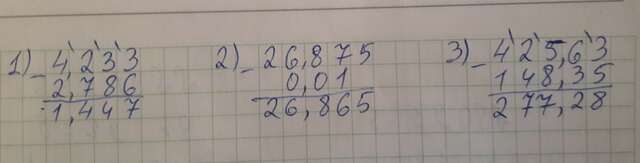 1) - 4,233 2) - 26,875 3) - 425,63
2,786 0,01 148,35
1,447 26,865 277,28